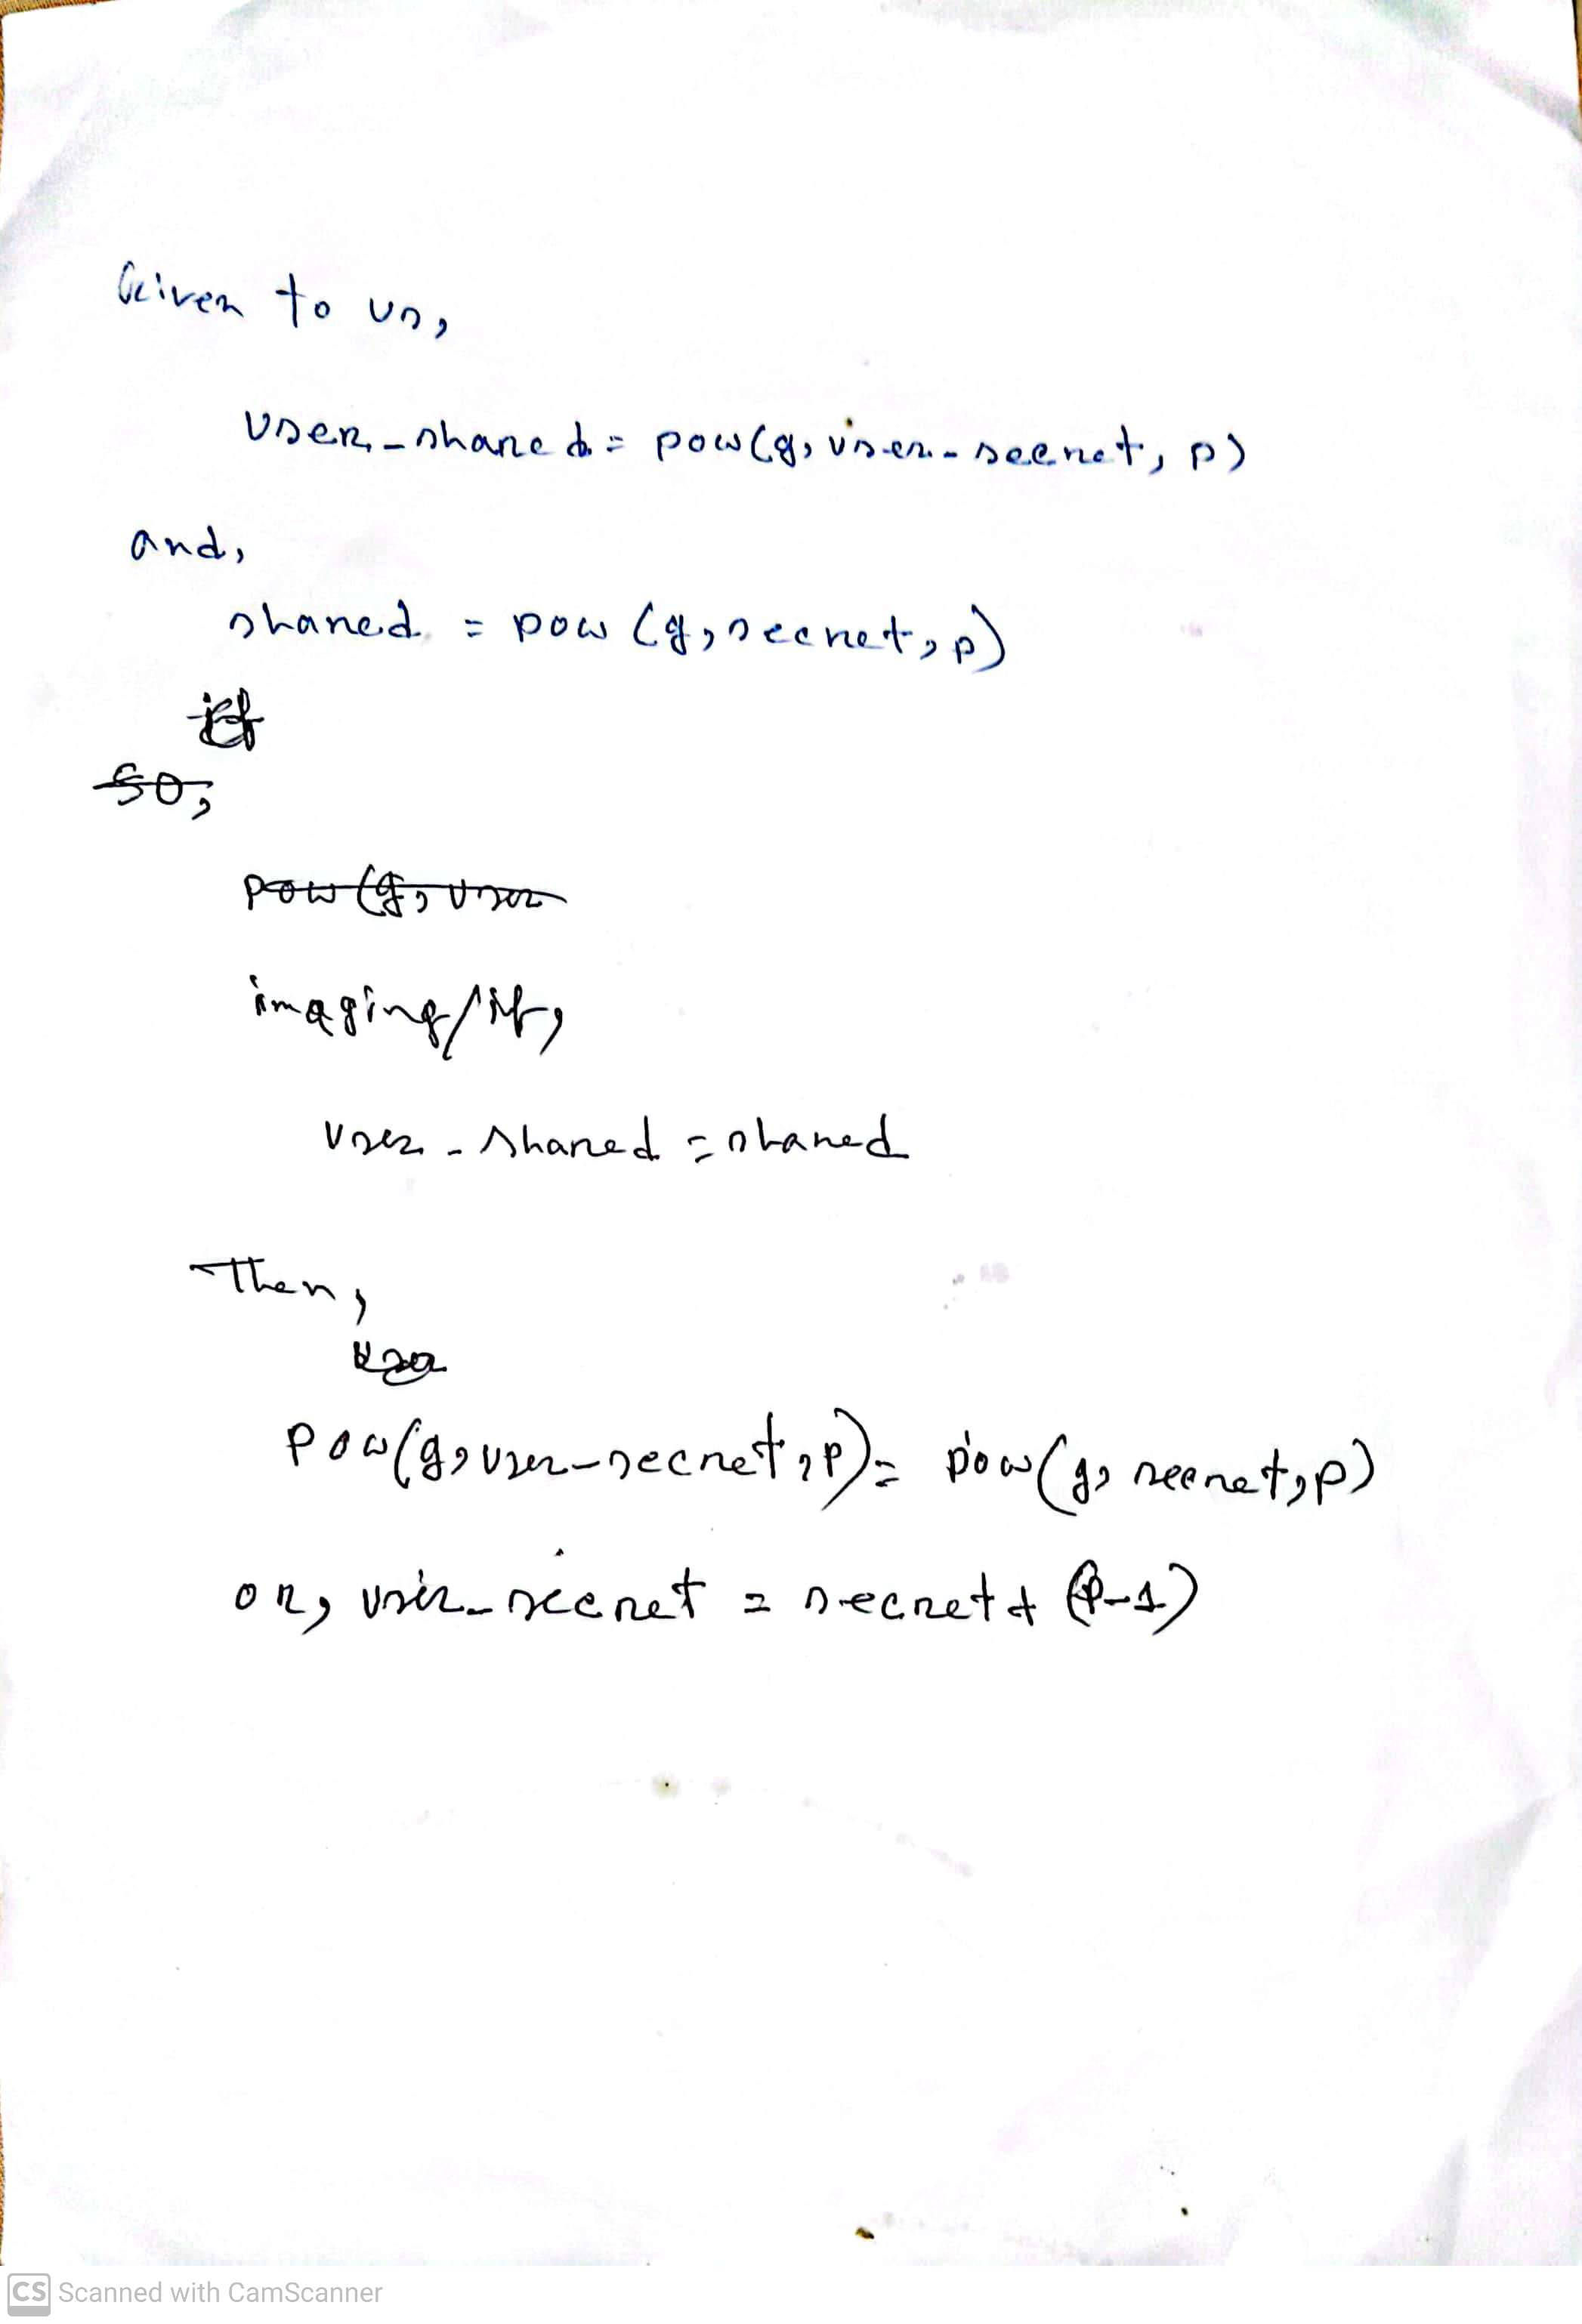 Given to us,
user_shared = pow(g, user_secret, p)
and,
shared = pow (g, secret, p)
if
So,
pow (g, user
imaging/if,
user_shared = shared
Then,
user
pow(g, user_secret, p) = pow(g, secret, p)
or, user_secret = secret + (p-1)
CS Scanned with CamScanner